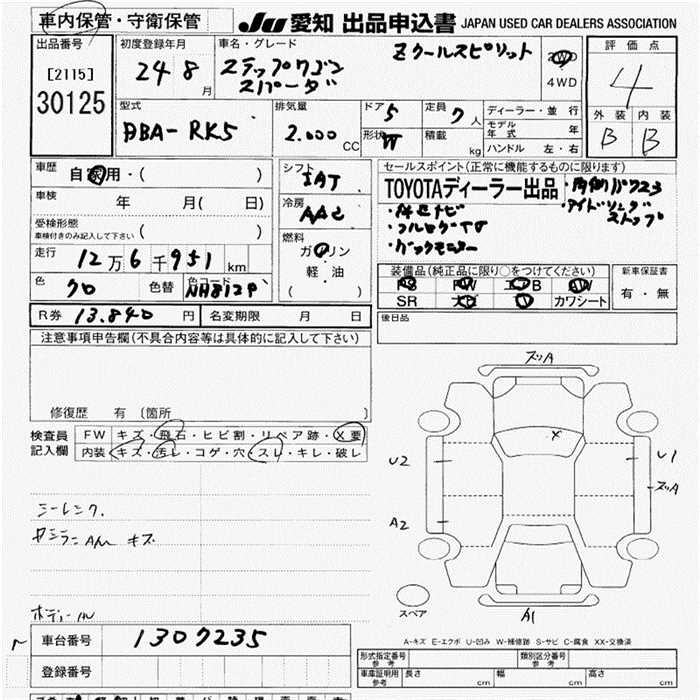 車内保管・守衛保管
JU 愛知 出品申込書 JAPAN USED CAR DEALERS ASSOCIATION
出品番号
[2115]
30125
初度登録年月
24 8 月
車名・グレード
ステップワゴン
スパーダ
Zクールスピリット
2WD
4WD
評価点
4
外装 内装
B B
型式
DBA-RK5
排気量
2.000 CC
ドア 5
形状 W
定員 7 人
積載 kg
ディーラー・並行
モデル年式 年
ハンドル 左・右
車歴
自家用・( )
車検
年 月( 日)
受検形態
車検付きのみ記入して下さい ( )
走行
12万6千951 km
色
クロ
色替
色コード
NH812P
シフト
IAT
冷房
AAC
燃料
ガソリン
軽・油
( )
セールスポイント(正常に機能するものに限ります)
TOYOTAディーラー出品
・両側パワスラ
・アイドリング
ストップ
・ナビ
・フルセグTV
・バックモニター
装備品(純正品に限り○をつけてください)
PS PW エアB AW
SR ナビ カワシート
新車保証書
有・無
後日品
R券 13.840 円
名変期限 月 日
注意事項申告欄(不具合内容等は具体的に記入して下さい)
修復歴 有〔箇所 〕
検査員
記入欄
FW キズ・飛石・ヒビ割・リペア跡・X要
内装 キズ・汚レ・コゲ・穴・スレ・キレ・破レ
シーレンク.
キズ
スリA
X
U2
U1
スリA
A2
A1
スペア
A-キズ E-エクボ U-凹み W-補修跡 S-サビ C-腐食 XX-交換済
車台番号 1307235
登録番号
形式指定番号
参考
類別区分番号
参考
車庫証明用
参考
長さ cm 幅 cm 高さ cm